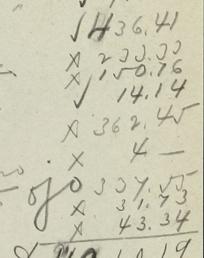 √ 436.41
x 233.33
x 150.16
√ 14.14
x 362.45
x 4 —
337.55
x 31.73
x 43.34